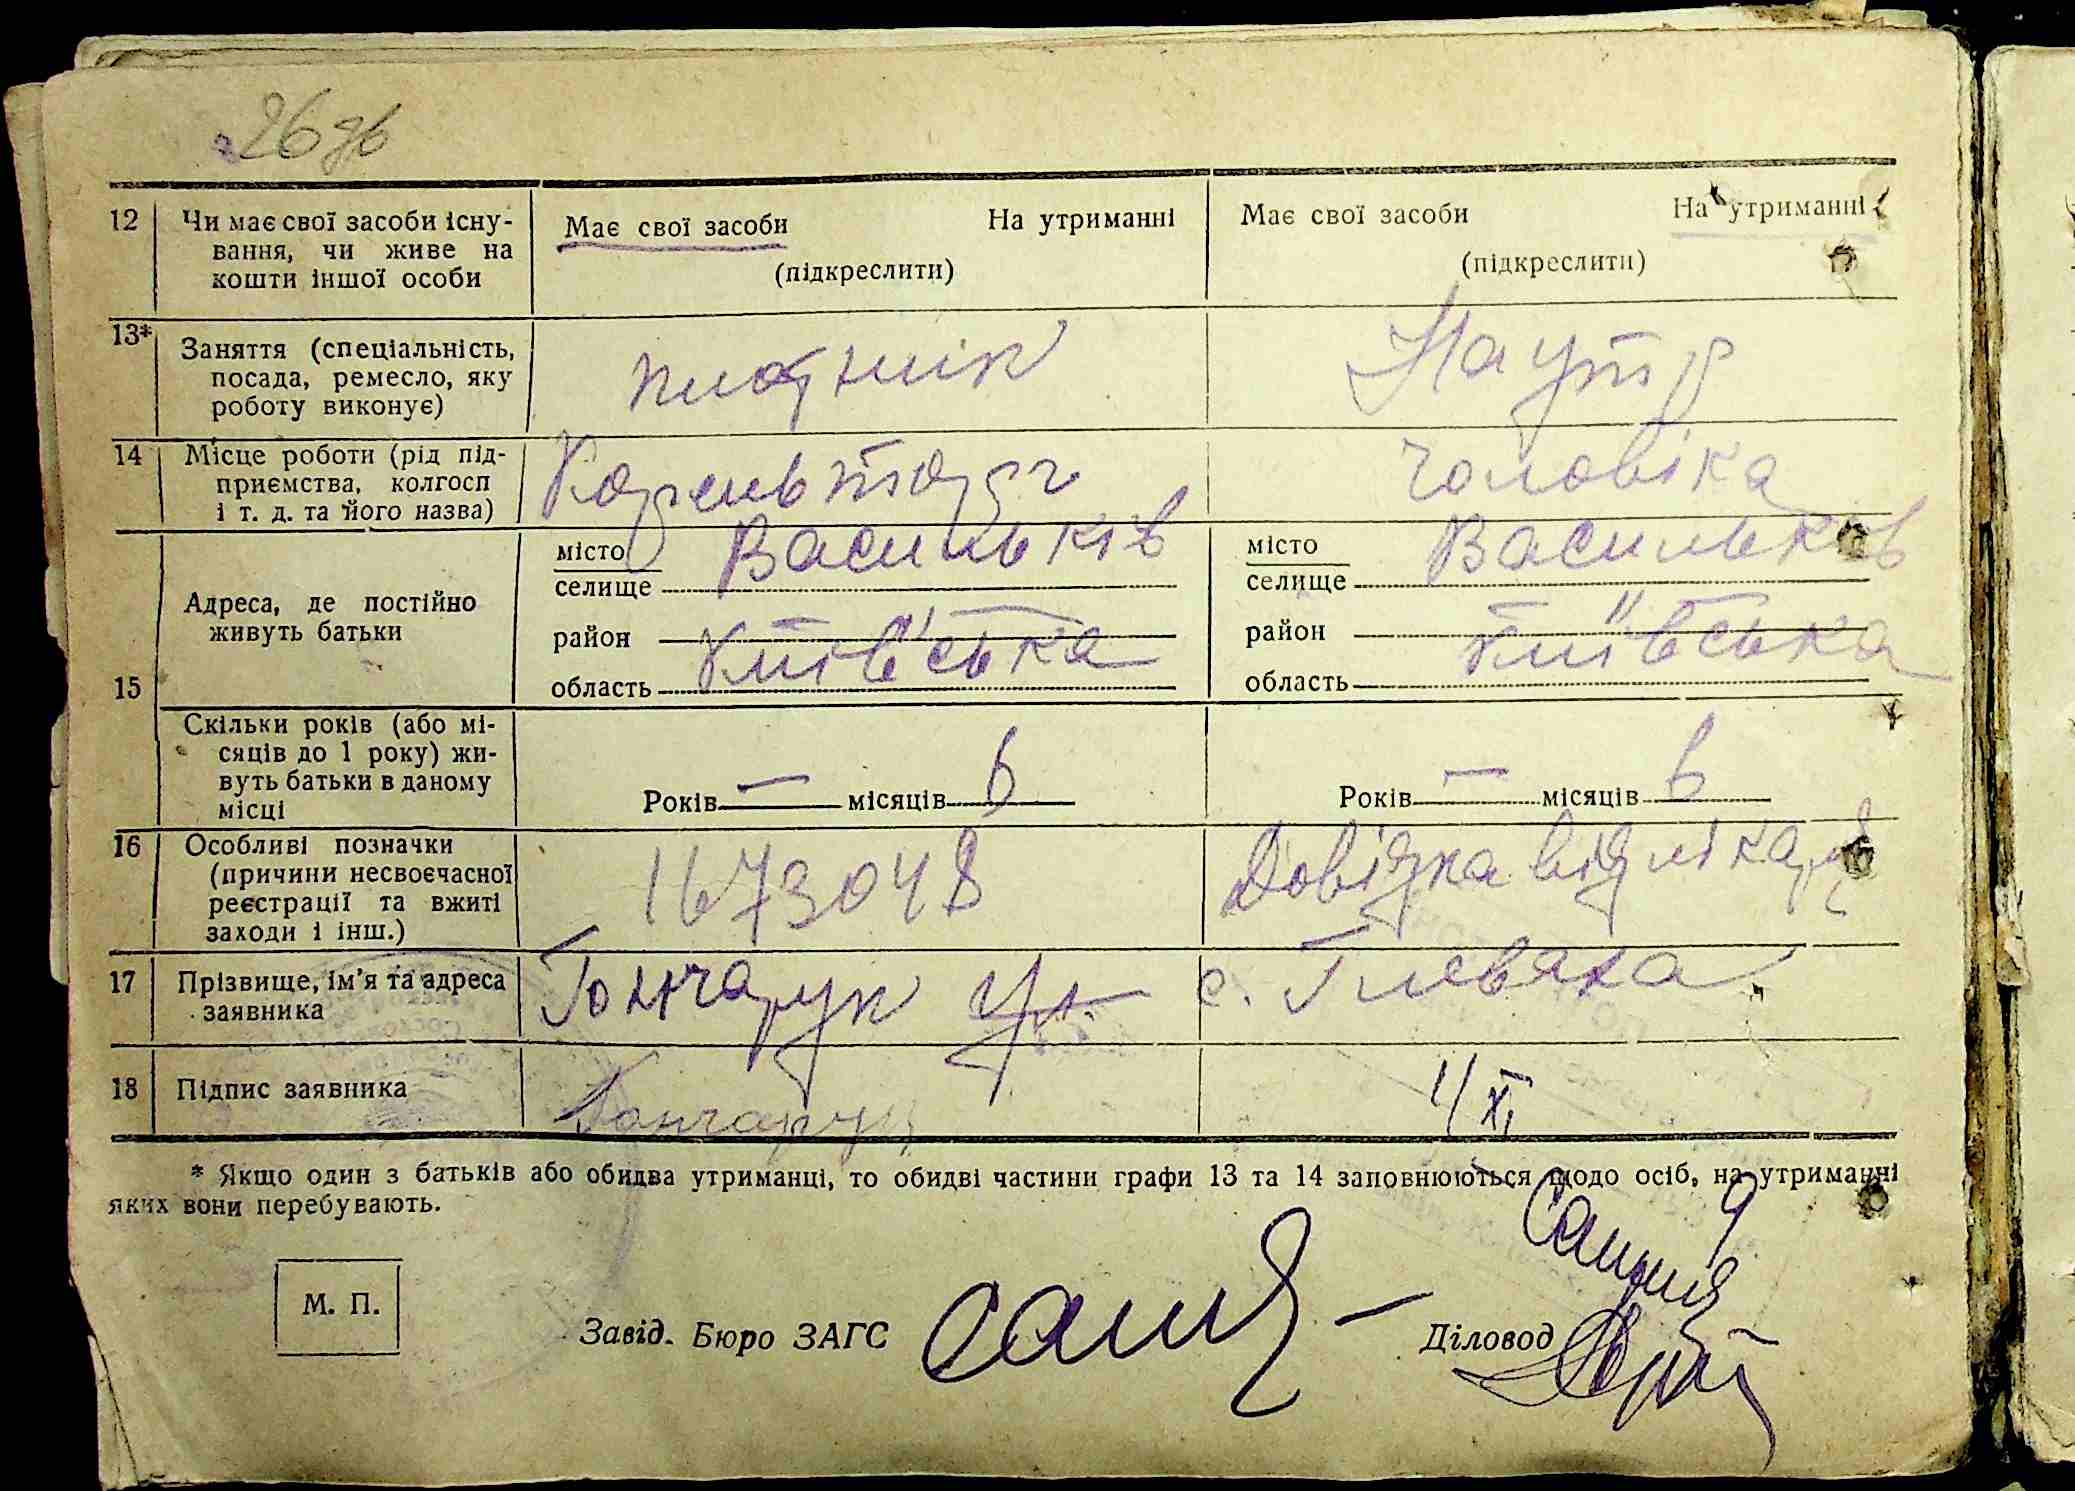 26 зв
12 Чи має свої засоби існу-
вання, чи живе на
кошти іншої особи
Має свої засоби На утриманні
(підкреслити)
Має свої засоби На утриманні
(підкреслити)
13* Заняття (спеціальність,
посада, ремесло, яку
роботу виконує)
плотник
На утр
14 Місце роботи (рід під-
приємства, колгосп
і т. д. та його назва)
чоловіка
15 Адреса, де постійно
живуть батьки
місто Васильків
селище
район
область Київська
місто Васильків
селище
район
область Київська
Скільки років (або мі-
сяців до 1 року) жи-
вуть батьки в даному
місці
Років — місяців 6
Років — місяців 6
16 Особливі позначки
(причини несвоєчасної
реєстрації та вжиті
заходи і інш.)
1673048
Довідка від лікаря
17 Прізвище, ім'я та адреса
заявника
Гончарук
с. Глеваха
18 Підпис заявника
Гончарук
XI
* Якщо один з батьків або обидва утриманці, то обидві частини графи 13 та 14 заповнюються щодо осіб, на утриманні
яких вони перебувають.
М. П.
Завід. Бюро ЗАГС
Діловод